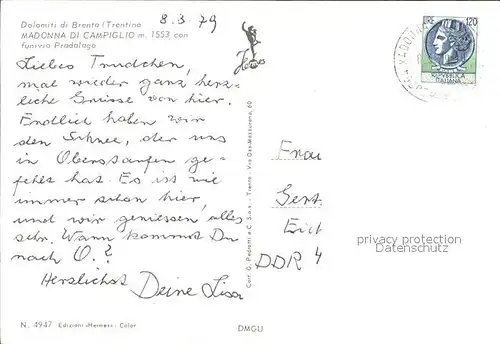 8.3.79
Dolomiti di Brenta (Trentino
MADONNA DI CAMPIGLIO m. 1553 con
funivia Pradalago
Liebes Trudchen,
mal wieder ganz herz-
liche Grüsse von hier.
Endlich haben wir
den Schnee, der uns
in Obersaufen ge-
fehlt hat. Es ist wie
immer schön hier,
und wir geniessen alles
sehr. Wann kommst Du
nach O.?
Herzlichst Deine Lisa
N. 4947 Edizioni «Hermes» Color
DMGU
LIRE 120
REPVBBLICA
ITALIANA
MADONNA
Frau
Gert
Erich
DDR 4
privacy protection
Datenschutz